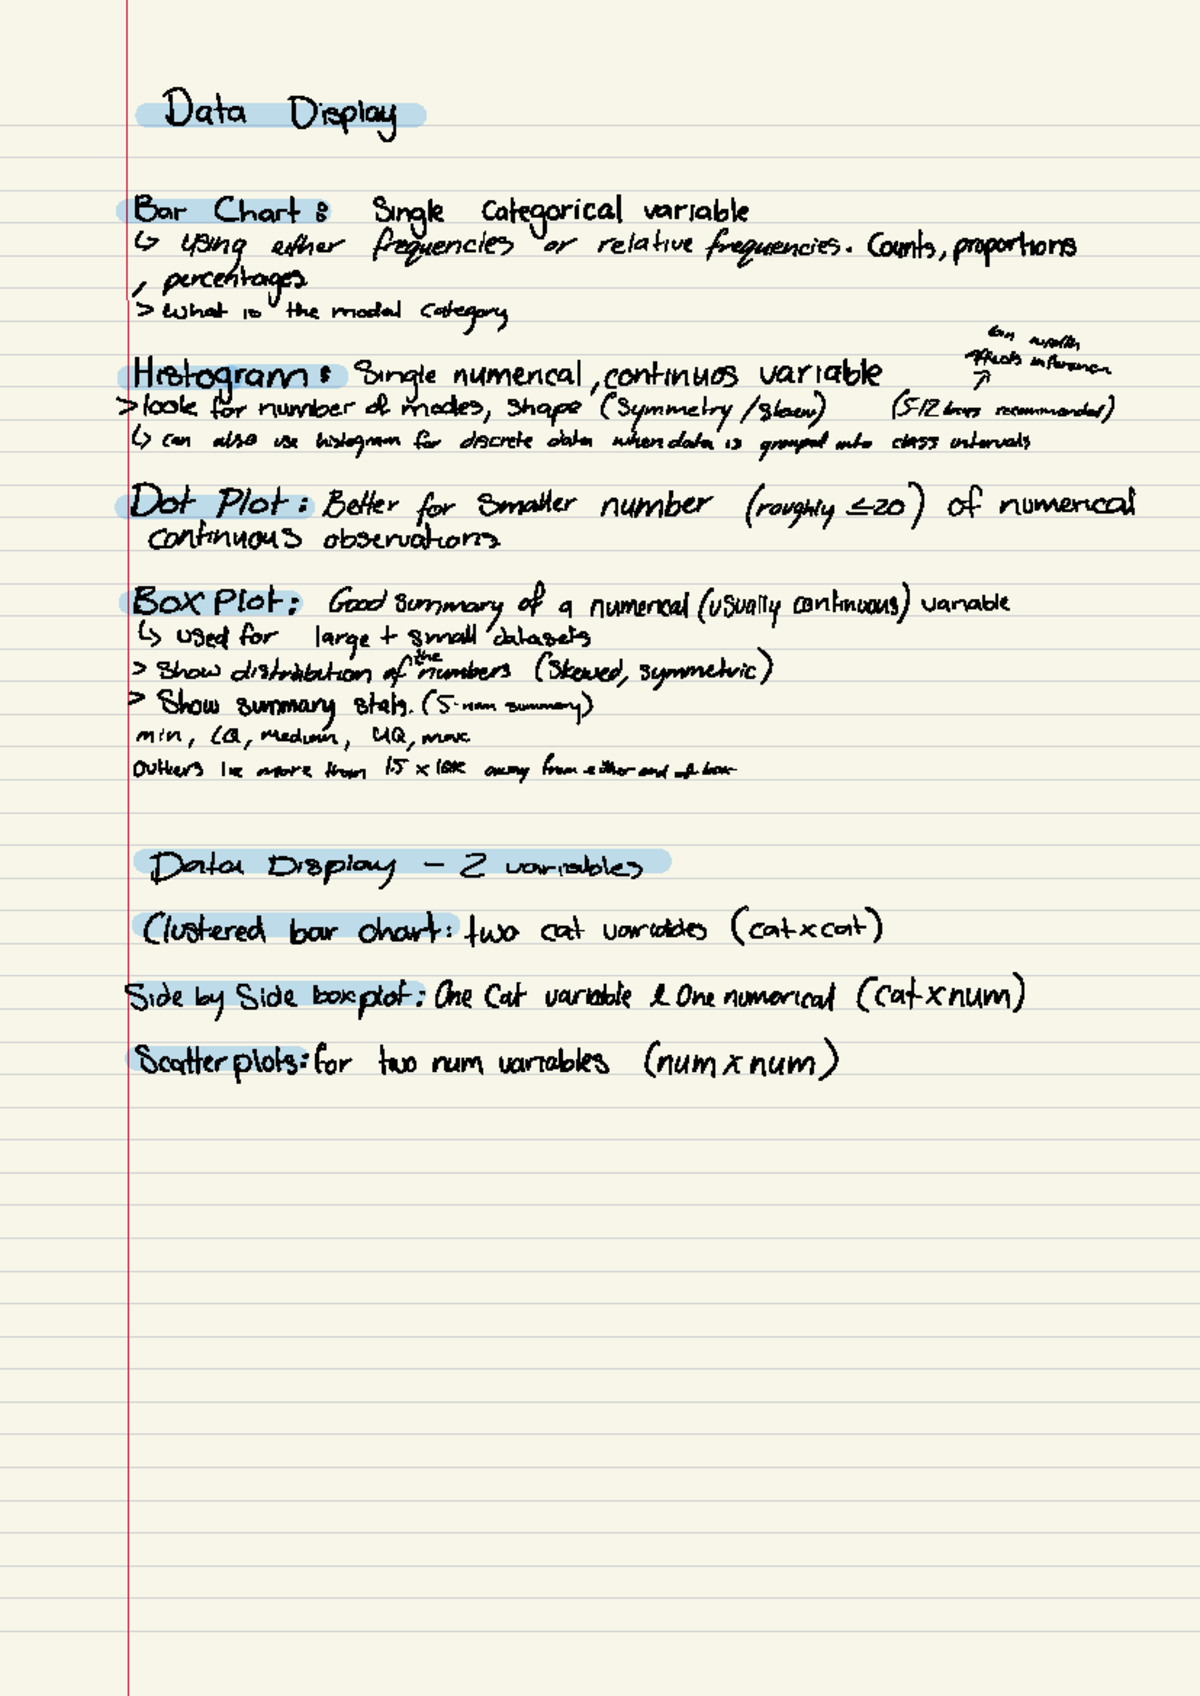 Data Display
Bar Chart: Single Categorical variable
↳ using either frequencies or relative frequencies. Counts, proportions
, percentages
> What is the modal Category
bin width
affects inference
Histogram: Single numerical, continuos variable
> look for number of modes, shape (Symmetry / Skew) (5-12 bins recommended)
↳ can also use histogram for discrete data when data is grouped into class intervals
Dot Plot: Better for Smaller number (roughly ≤20) of numerical
continuous observations
Box Plot: Good summary of a numerical (usually continuous) variable
↳ used for large + small datasets
> Show distribution of the numbers (Skewed, symmetric)
> Show summary stats. (5-num summary)
min, LQ, median, UQ, max
Outliers lie more than 1.5 x IQR away from either end of box
Data Display - 2 variables
Clustered bar chart: two cat variables (cat x cat)
Side by Side boxplot: One Cat variable & One numerical (cat x num)
Scatter plots: for two num variables (num x num)